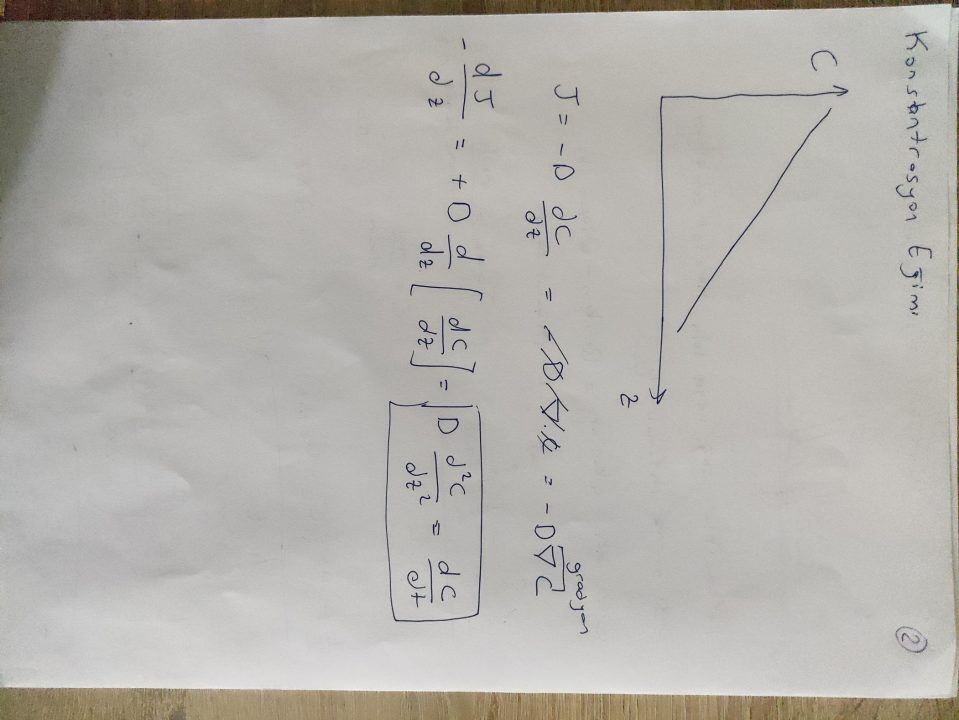 Konstantrasyon Eğimi
②
C
z
J = -D dC/dz = = -D ∇C gradyan
- dJ/dz = + D d/dz [dC/dz] = D d²C/dz² = dC/dt